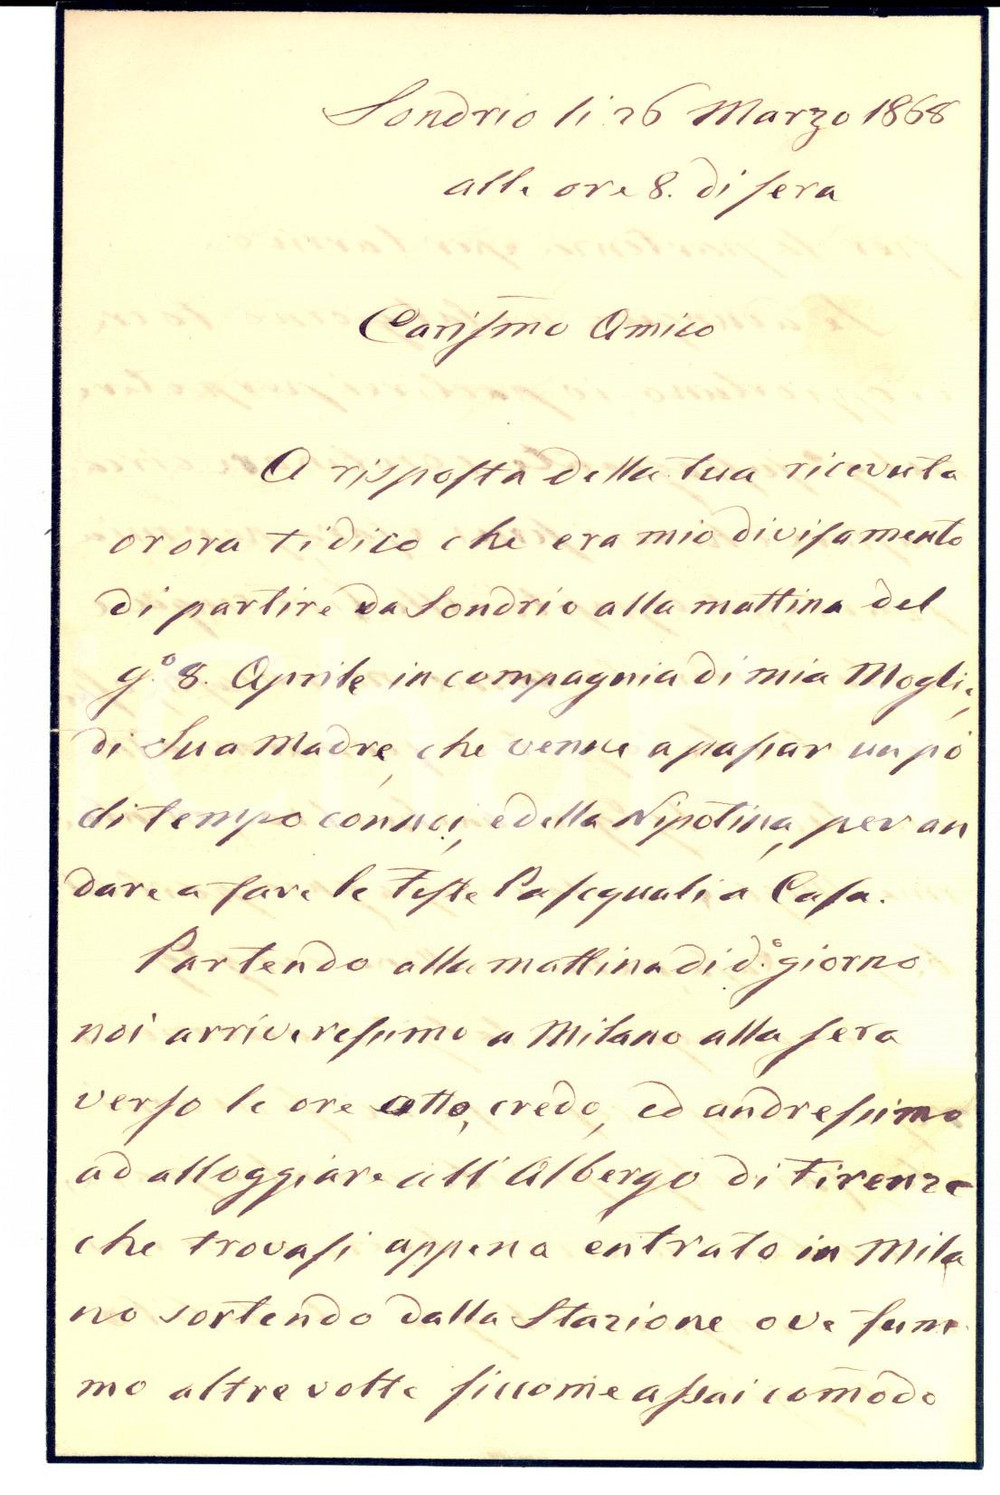 Sondrio li 26 Marzo 1868
alle ore 8. di sera
Carissmo Amico
A risposta della tua ricevuta
or ora ti dico che era mio divisamento
di partire da Sondrio alla mattina del
g.º 8. Aprile in compagnia di mia Moglie,
di Sua Madre, che venne a passar un pò
di tempo connoi, e della Nipotina, per an
dare a fare le Feste Pasquali a Casa.
Partendo alla mattina di d.º giorno
noi arriveressimo a Milano alla sera
verso le ore otto, credo, ed andressimo
ad alloggiare all'Albergo di Firenze
che trovasi appena entrato in Mila
no sortendo dalla Stazione ove fum
mo altre volte siccome assai comodo